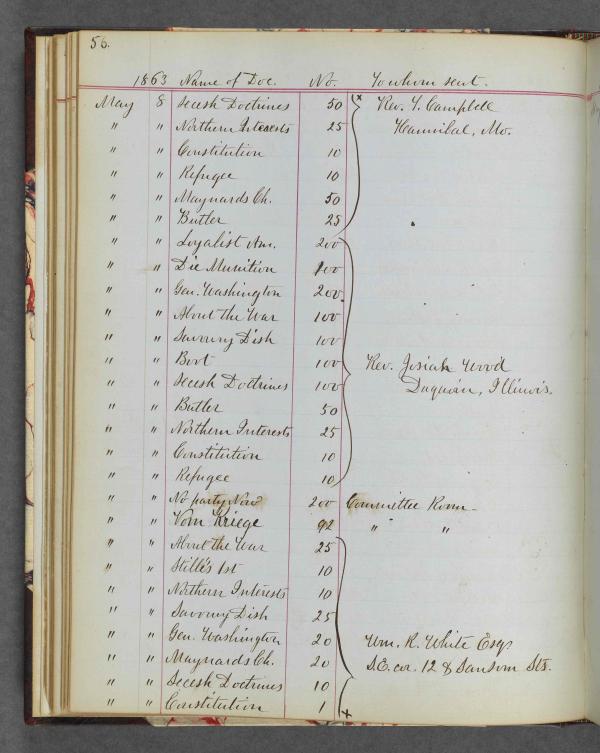 56.
1863 Name of Doc. No. To whom sent.
May 8 Secesh Doctrines 50 Rev. Y. Campbell
" " Northern Interests 25 Hannibal, Mo.
" " Constitution 10
" " Refugee 10
" " Maynards Ch. 50
" " Butler 25
" " Loyalist Am. 200
" " Die Munition 100
" " Gen. Washington 200
" " About the War 100
" " Savoury Dish 100
" " Boot 100 Rev. Josiah Wood
" " Secesh Doctrines 100 Duquoin, Illinois.
" " Butler 50
" " Northern Interests 25
" " Constitution 10
" " Refugee 10
" " No party Now 200 Committee Room
" " Vom Kriege 92 " "
" " About the War 25
" " Stille's 1st 10
" " Northern Interests 10
" " Savoury Dish 25
" " Gen. Washington 20 Wm. R. White Esq
" " Maynards Ch. 20 S.E. cor. 12 & Sansom Sts.
" " Secesh Doctrines 10
" " Constitution 1